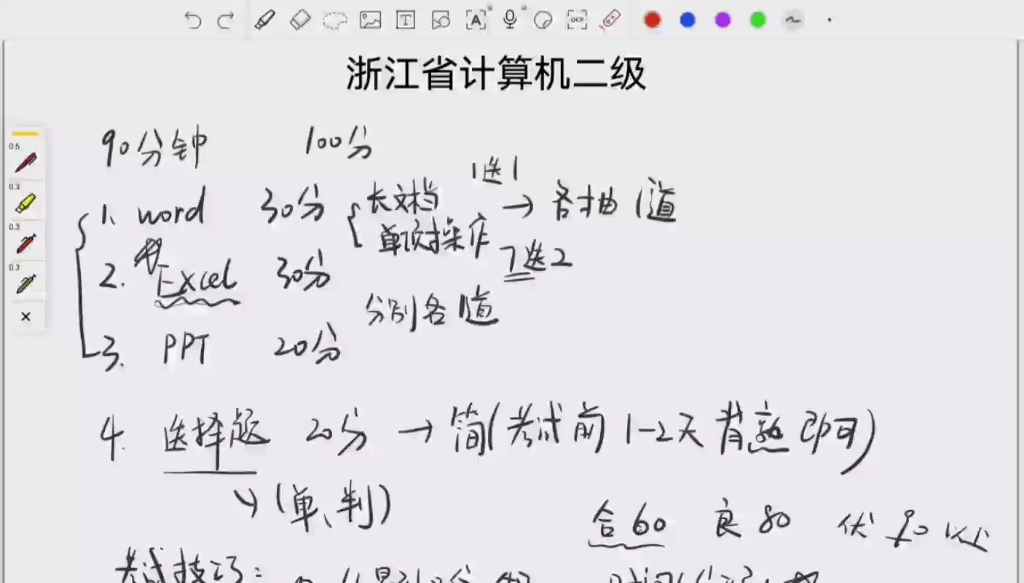 浙江省计算机二级
90分钟 100分
1选1
1. word 30分 长文档 → 各抽1道
单项操作 7选2
2. Excel 30分
分别各1道
3. PPT 20分
4. 选择题 20分 → 简(考试前1-2天背熟即可)
(单、判)
合60 良80 优90以上
考试技巧: